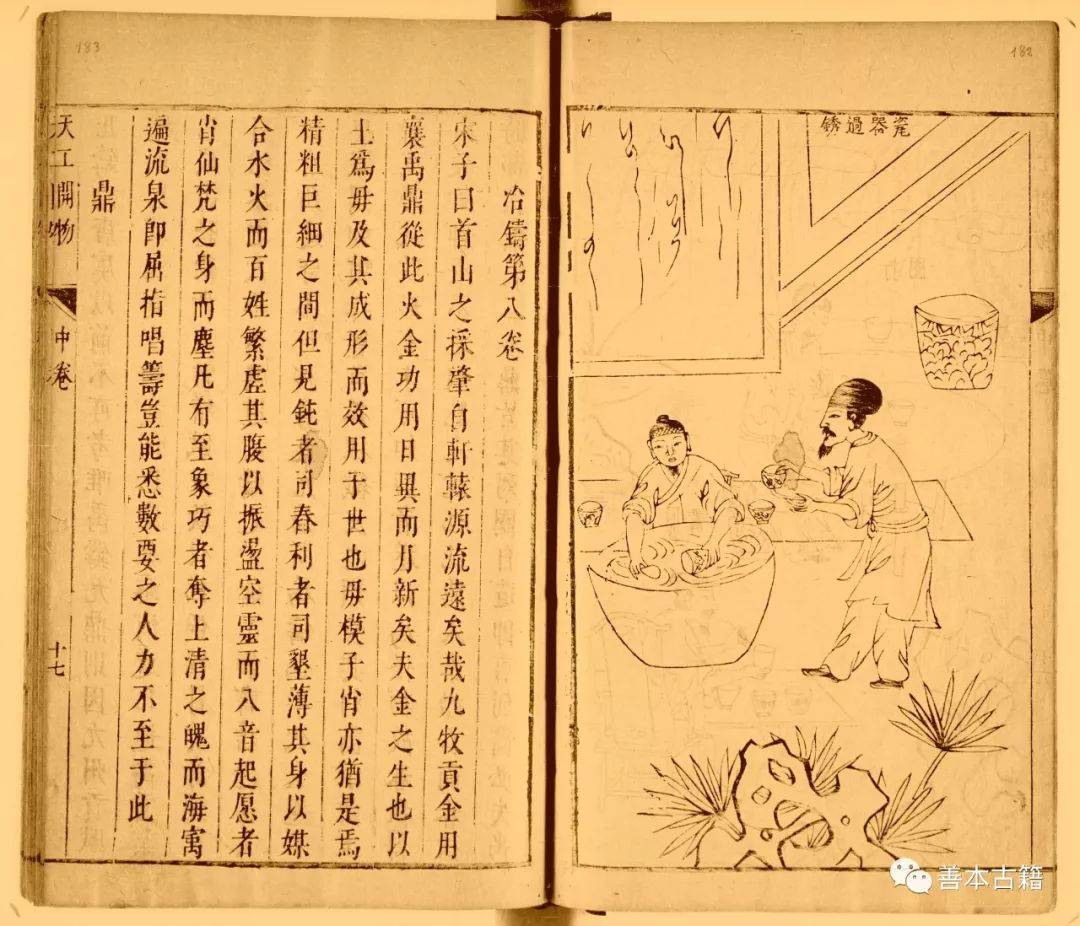 182
瓷器過銹
183
冶鑄第八卷
宋子曰首山之採肇自軒轅源流遠矣哉九牧貢金用
襄禹鼎從此火金功用日異而月新矣夫金之生也以
土爲母及其成形而效用于世也母模子肖亦猶是焉
精粗巨細之間但見鈍者司舂利者司墾薄其身以媒
合水火而百姓繁虛其腹以振盪空靈而八音起愿者
肖仙梵之身而塵凡有至象巧者奪上清之魄而海寓
遍流泉即屈指唱籌豈能悉數要之人力不至于此
鼎
天工開物 中卷 十七
善本古籍